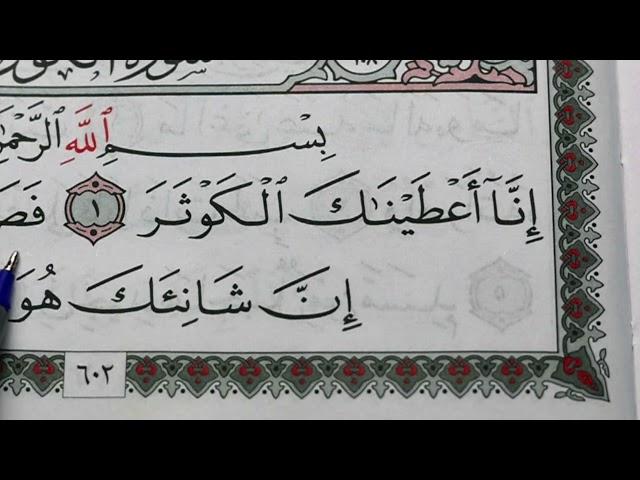 سورة الكوثر ١٠٨
بِسْمِ ٱللَّهِ ٱلرَّحْمَٰ
إِنَّآ أَعْطَيْنَٰكَ ٱلْكَوْثَرَ ١ فَصَ
إِنَّ شَانِئَكَ هُوَ
٦٠٢